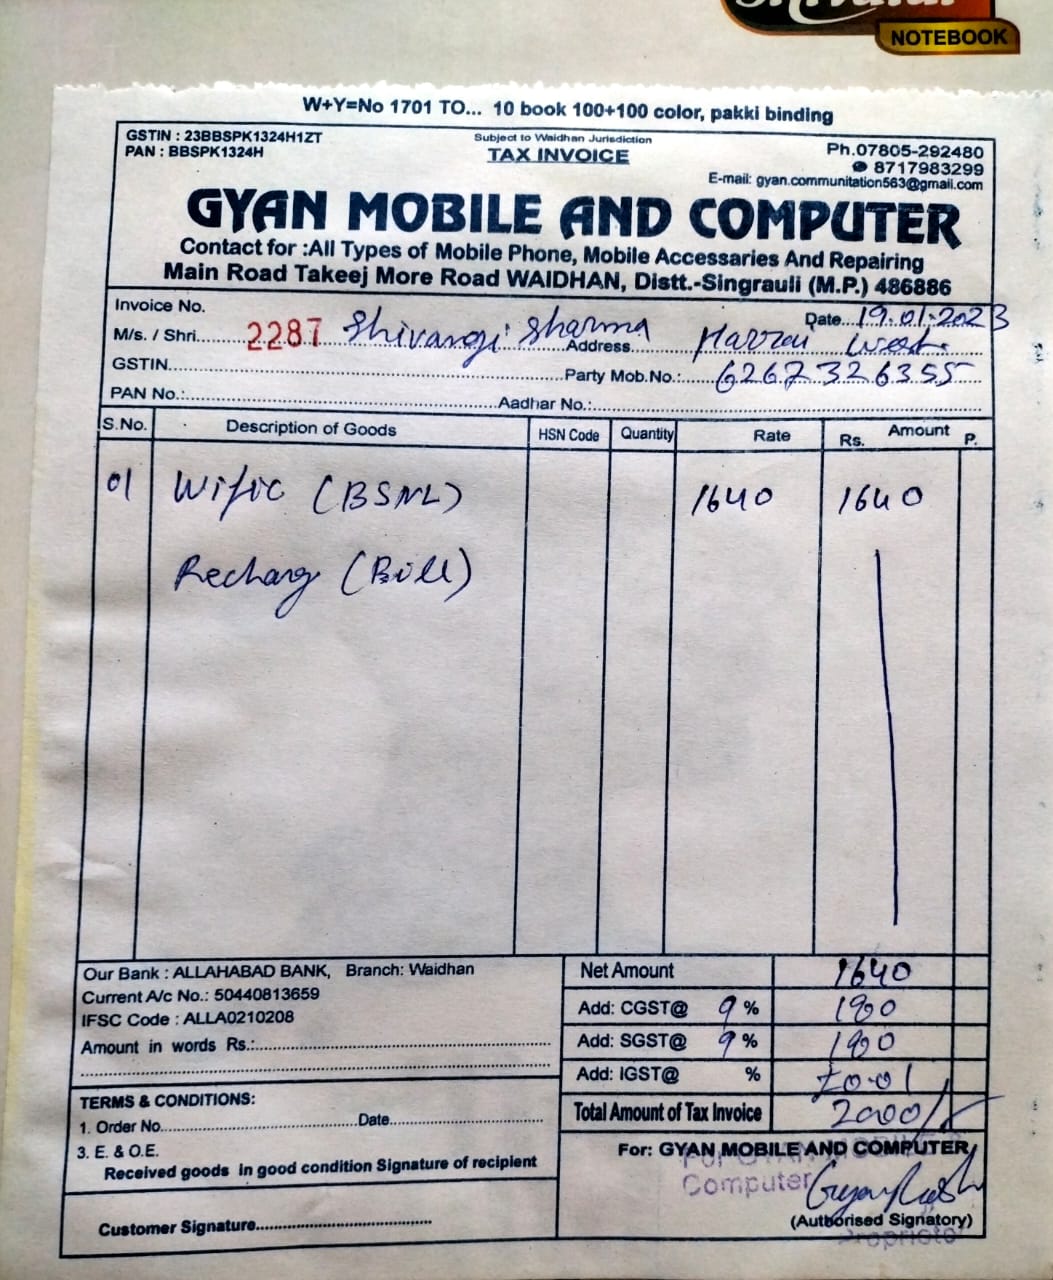 NOTEBOOK
W+Y=No 1701 TO... 10 book 100+100 color, pakki binding
GSTIN : 23BBSPK1324H1ZT
PAN : BBSPK1324H
Subject to Waidhan Jurisdiction
TAX INVOICE
Ph.07805-292480
8717983299
E-mail: gyan.communitation563@gmail.com
GYAN MOBILE AND COMPUTER
Contact for :All Types of Mobile Phone, Mobile Accessaries And Repairing
Main Road Takeej More Road WAIDHAN, Distt.-Singrauli (M.P.) 486886
Invoice No. Date...19.01.2023
M/s. / Shri.....2287 Shivangi Sharma Address
GSTIN.....Party Mob.No.:.....6267326355
PAN No.:.....Aadhar No.:.....
S.No. Description of Goods HSN Code Quantity Rate Amount Rs. P.
01 Wific (BSNL) 1640 1640
Recharg (Bill)
Our Bank : ALLAHABAD BANK, Branch: Waidhan
Current A/c No.: 50440813659
IFSC Code : ALLA0210208
Amount in words Rs.:
Net Amount 1640
Add: CGST@ 9 % 180
Add: SGST@ 9 % 180
Add: IGST@ %
Total Amount of Tax Invoice 2000/-
TERMS & CONDITIONS:
1. Order No.....Date.....
3. E. & O.E.
Received goods in good condition Signature of recipient
Customer Signature.....
For: GYAN MOBILE AND COMPUTER
For GYAN MOBILE &
Computer
(Authorised Signatory)
Proprietor